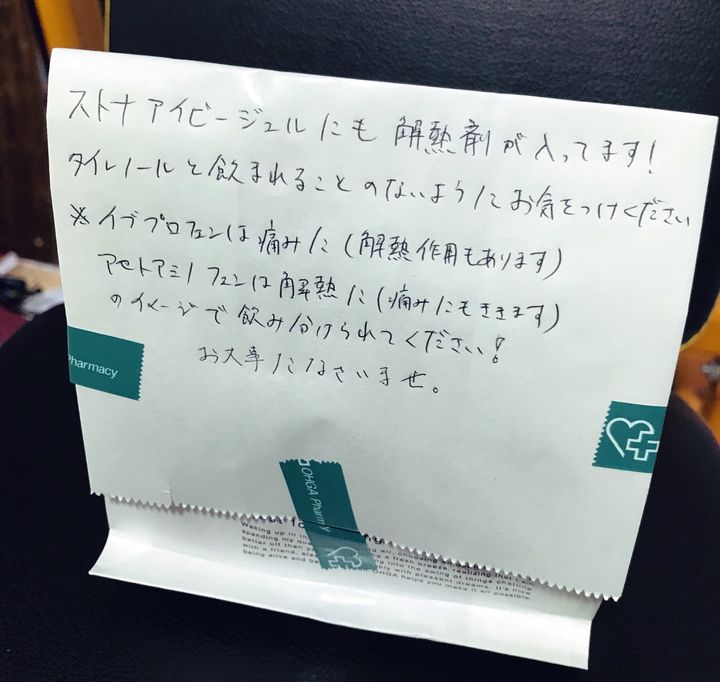 ストナアイビージェルにも解熱剤が入ってます!
タイレノールと飲まれることのないようにお気をつけください
※イブプロフェンは痛みに(解熱作用もあります)
アセトアミノフェンは解熱に(痛みにもききます)
のイメージで飲み分けられてください!
お大事になさいませ。
Pharmacy
OHGA Pharm y
Waking up in
spending my qu
better off than air, choosing
with a friend, a fresh breeze, realizing that
being alive and into the swing of things chatting
bly with pleasant dreams. It's nice
OHGA helps you make it all possible.